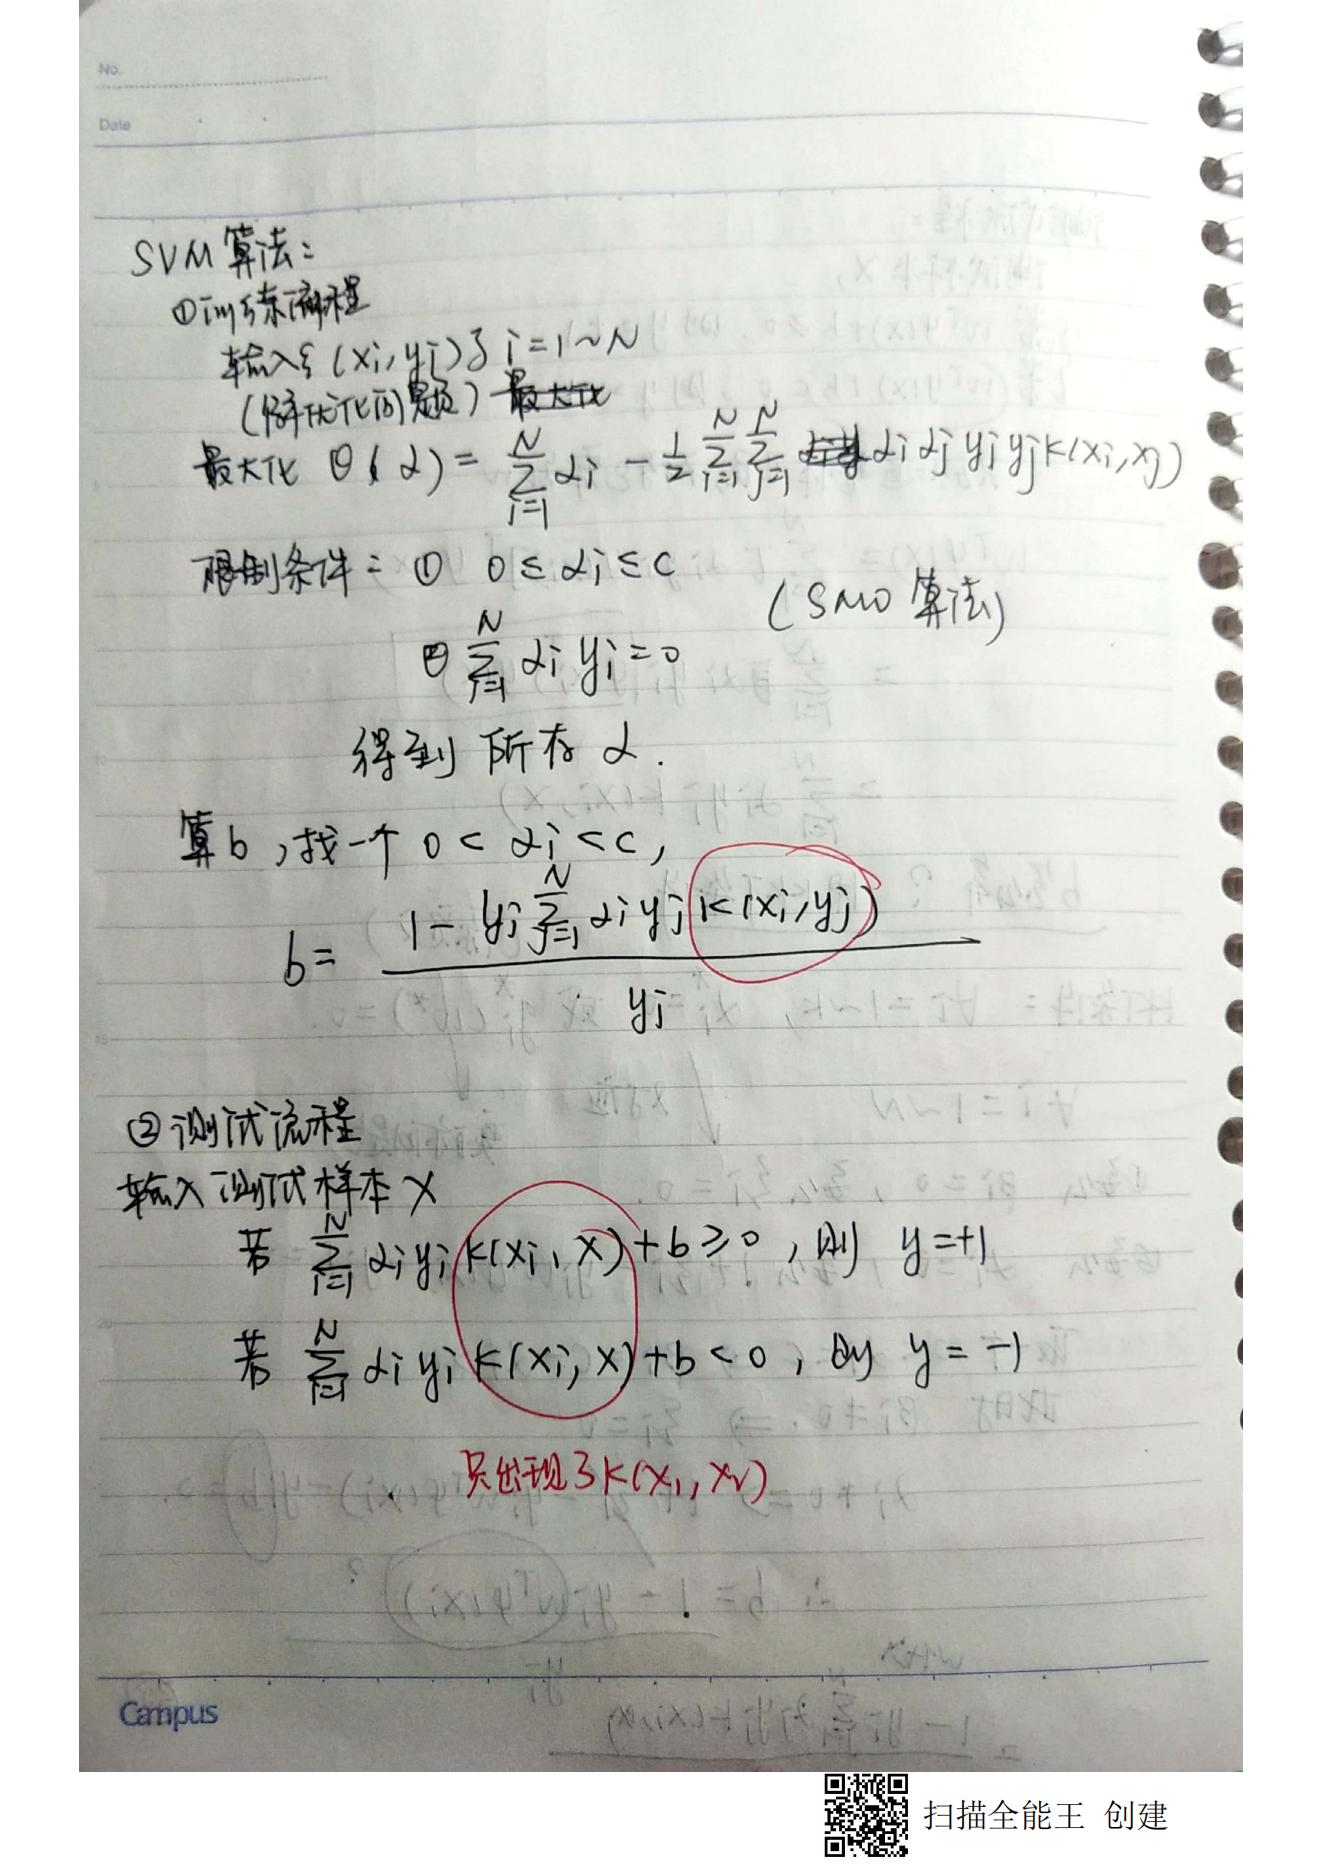 No.
Date
SVM算法:
①训练流程
输入{(xi,yi)} i=1~N
(解优化问题) 最大化
最大化 θ(α) = Σ_{i=1}^{N} αi - 1/2 Σ_{i=1}^{N} Σ_{j=1}^{N} αi αj yi yj K(xi,xj)
限制条件: ① 0≤αi≤C
(SMO算法)
② Σ_{i=1}^{N} αi yi=0
得到 所有 α.
算b,找一个 0<αi<C,
b= (1- yi Σ_{j=1}^{N} αi yj K(xi,yj)) / yi
②测试流程
输入测试样本X
若 Σ_{i=1}^{N} αi yi K(xi,x)+b≥0,则 y=+1
若 Σ_{i=1}^{N} αi yi K(xi,x)+b<0,则 y=-1
只出现了K(x1,x2)
Campus
扫描全能王 创建